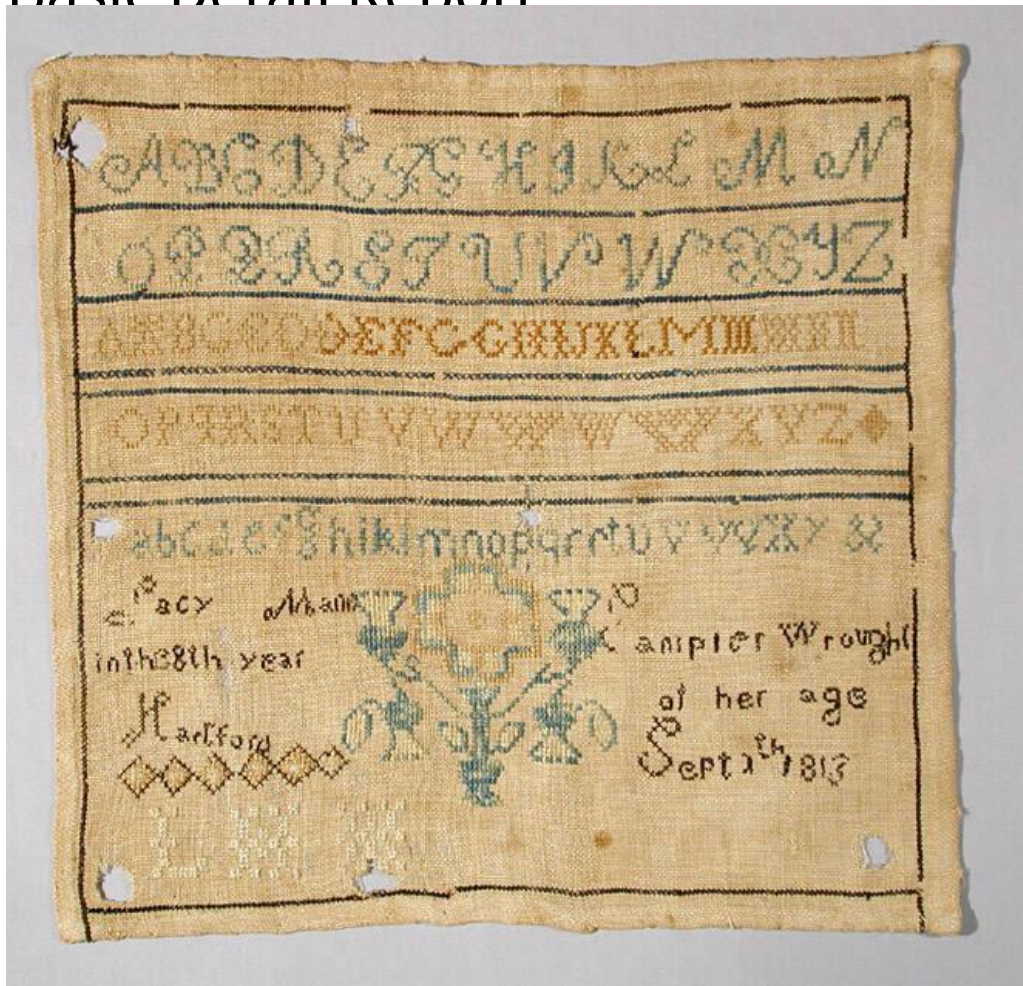 Basic Detail Report
A B C D E F G H I K L M N
O P Q R S T U V W X Y Z
A B C D E F G G H I J K L M
O P Q R S T U V W W X Y Z
a b c d e f g h i k l m n o p q r r t u v w x y &
Lacy Mann Sampler Wrought
in the 8th year of her age
Hartford Sept 1th 1813
L M